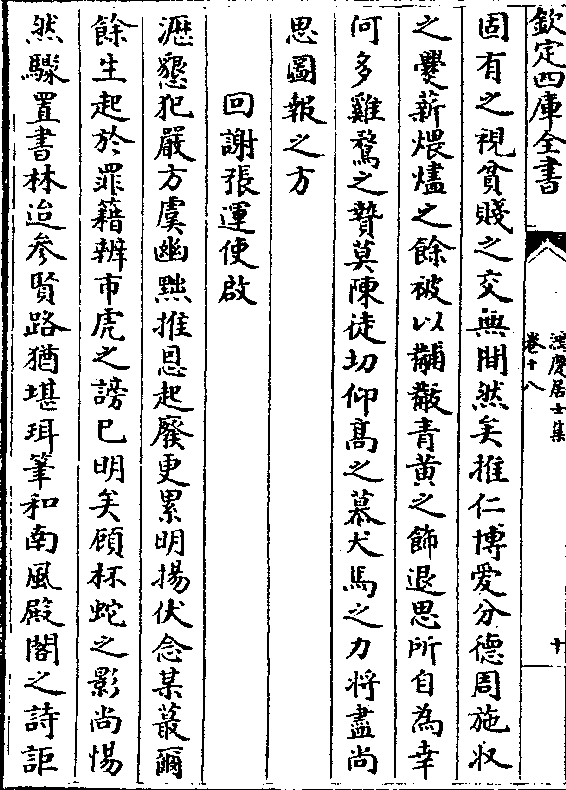 欽定四庫全書
鴻慶居士集
卷十八
十
固有之視貧賤之交無間然矣推仁博愛分德周施収
之㸑薪煨燼之餘被以黼黻青黄之飾退思所自為幸
何多雞鶩之贄莫陳徒切仰髙之慕犬馬之力将盡尚
思圖報之方
回謝張運使啟
瀝懇犯嚴方虞幽黜推恩起廢更累明揚伏念某蕞爾
餘生起於罪籍辨市虎之謗巳明矣顧杯蛇之影尚惕
然驟置書林迨参賢路猶堪珥筆和南風殿閣之詩詎